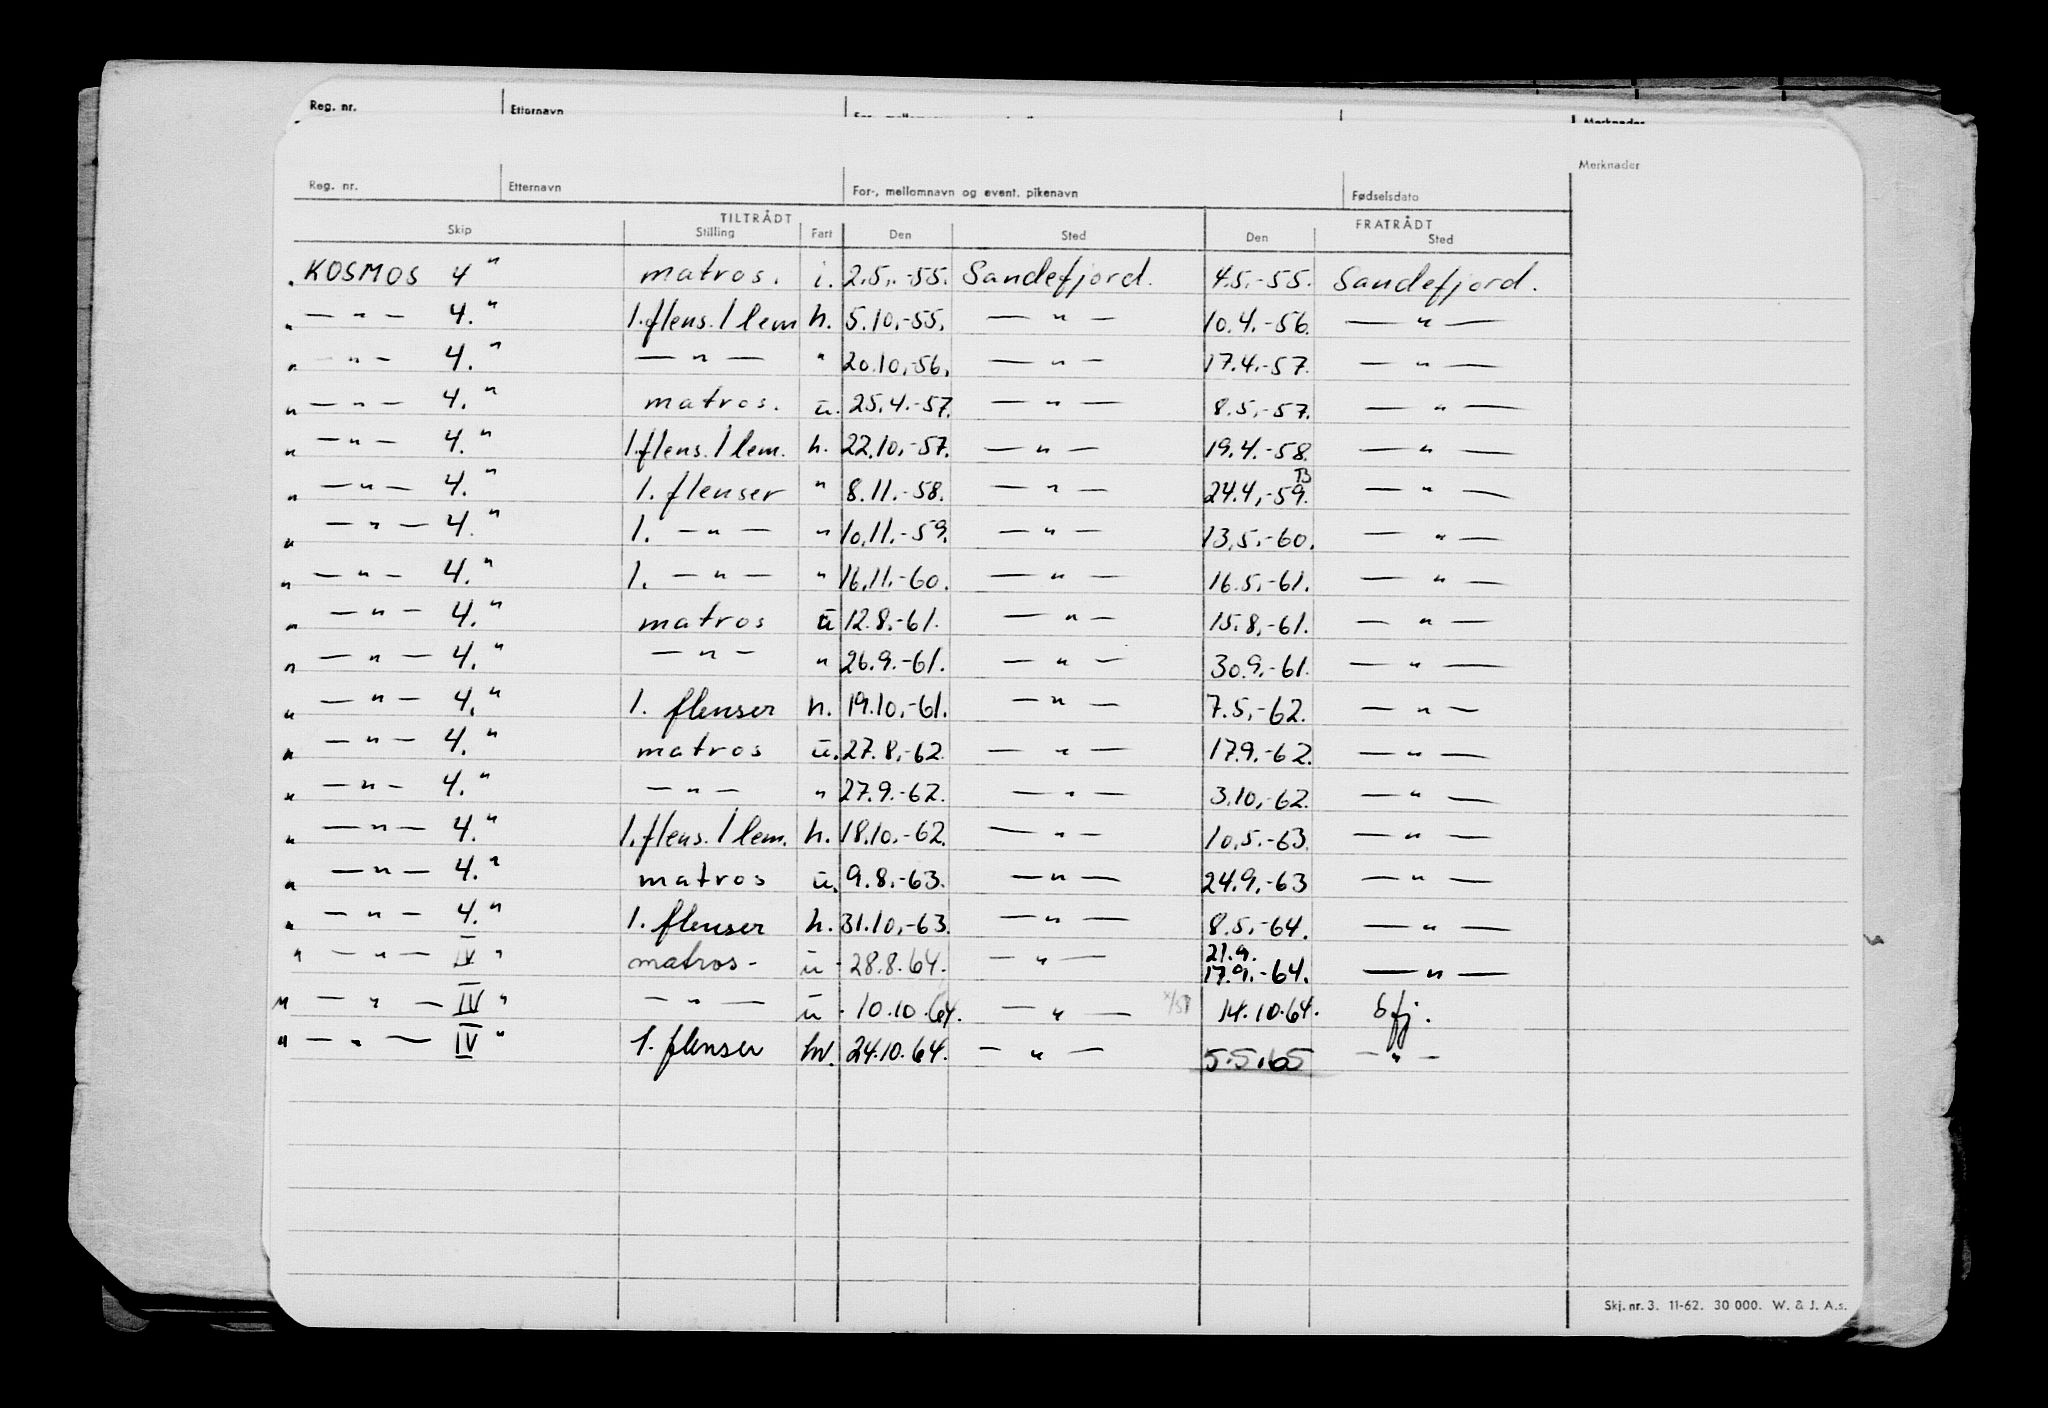 Reg. nr. Etternavn Merknader
Merknader
Reg. nr. Etternavn For-, mellomnavn og event. pikenavn Fødselsdato
TILTRÅDT FRATRÅDT
Skip Stilling Fart Den Sted Den Sted
"KOSMOS 4" matros. i. 2.5.-55. Sandefjord. 4.5.-55. Sandefjord.
" — " — 4." 1.flens./lem h. 5.10.-55. — " — 10.4.-56. — " —
" — " — 4." — " — " 20.10.-56. — " — 17.4.-57. — " —
" — " — 4." matros. u. 25.4.-57. — " — 8.5.-57. — " —
" — " — 4." 1.flens./lem. h. 22.10.-57. — " — 19.4.-58. — " —
" — " — 4." 1. flenser " 8.11.-58. — " — 24.4.-59. — " —
" — " — 4." 1. — " — " 10.11.-59. — " — 13.5.-60. — " —
" — " — 4." 1. — " — " 16.11.-60. — " — 16.5.-61. — " —
" — " — 4." matros u 12.8.-61. — " — 15.8.-61. — " —
" — " — 4." — " — " 26.9.-61. — " — 30.9.-61. — " —
" — " — 4." 1. flenser h. 19.10.-61. — " — 7.5.-62. — " —
" — " — 4." matros u. 27.8.-62. — " — 17.9.-62. — " —
" — " — 4." — " — " 27.9.-62. — " — 3.10.-62. — " —
" — " — 4." 1.flens./lem. h. 18.10.-62. — " — 10.5.-63. — " —
" — " — 4." matros u. 9.8.-63. — " — 24.9.-63 — " —
" — " — 4." 1. flenser h. 31.10.-63. — " — 8.5.-64. — " —
21.9.
" — " — IV " matros - u - 28.8.64. — " — 17.9.-64. — " —
" — " — IV " — " — u . 10.10.64. — " — 14.10.64. Sfj.
" — " — IV " 1. flenser hv. 24.10.64. — " — 5.5.65 — " —
Skj. nr. 3. 11-62. 30 000. W. & J. A.s.